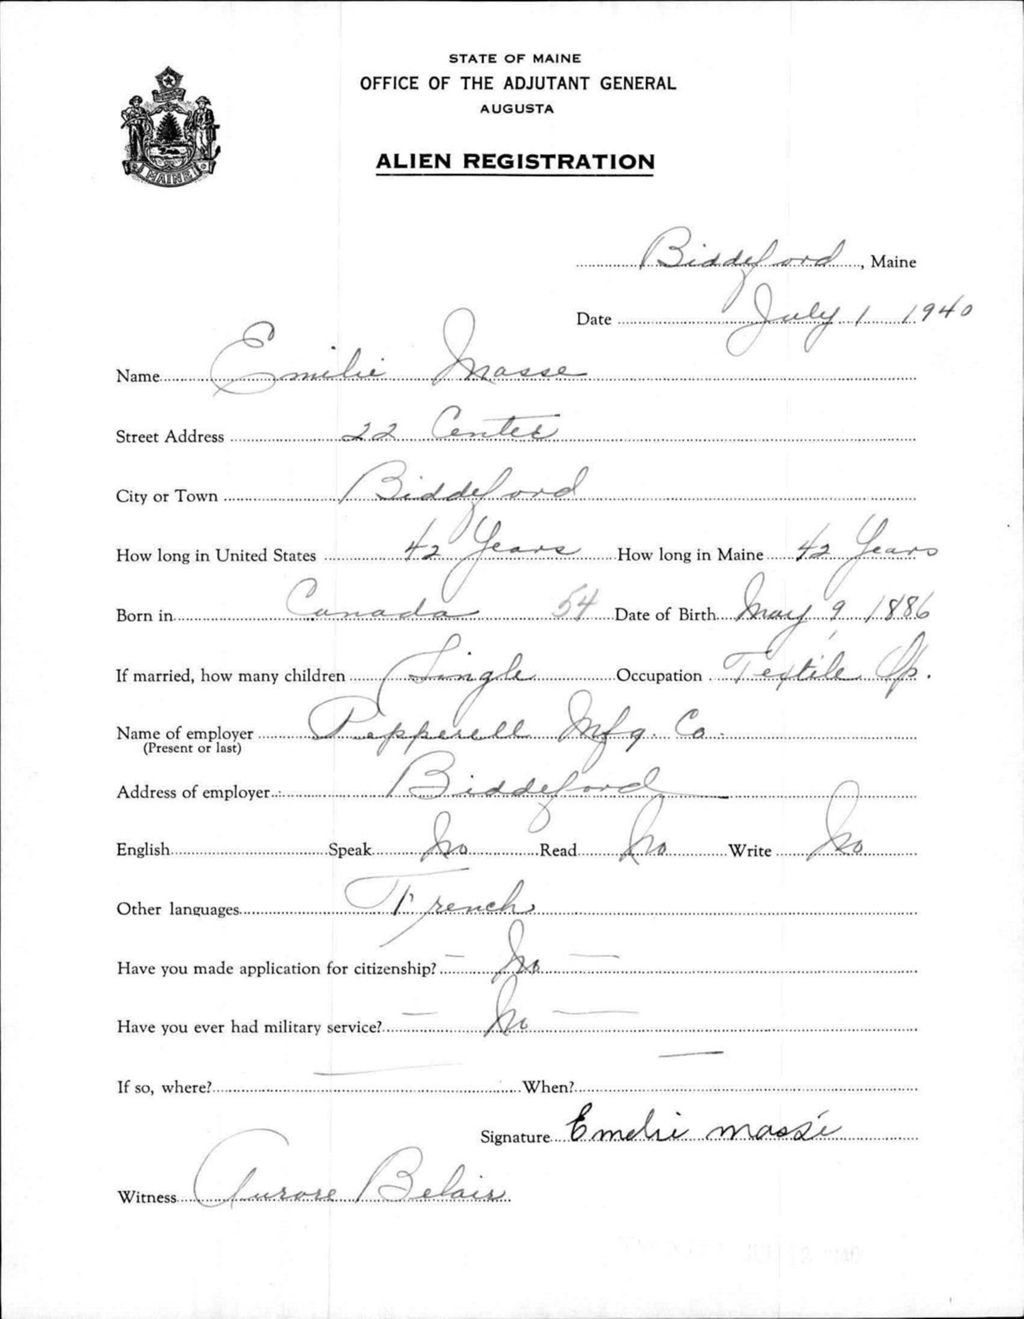 STATE OF MAINE
OFFICE OF THE ADJUTANT GENERAL
AUGUSTA
ALIEN REGISTRATION
MAINE
Biddeford, Maine
Date July 1 1940
Name Emilie Masse
Street Address 22 Center
City or Town Biddeford
How long in United States 42 Years How long in Maine 42 Years
Born in Canada 54 Date of Birth May 9, 1886
If married, how many children Single Occupation Textile Op.
Name of employer Pepperell Mfg. Co.
(Present or last)
Address of employer Biddeford
English Speak No Read No Write No
Other languages French
Have you made application for citizenship? — No —
Have you ever had military service? — No —
If so, where? — When? —
Signature Emelie massé
Witness Aurore Belair